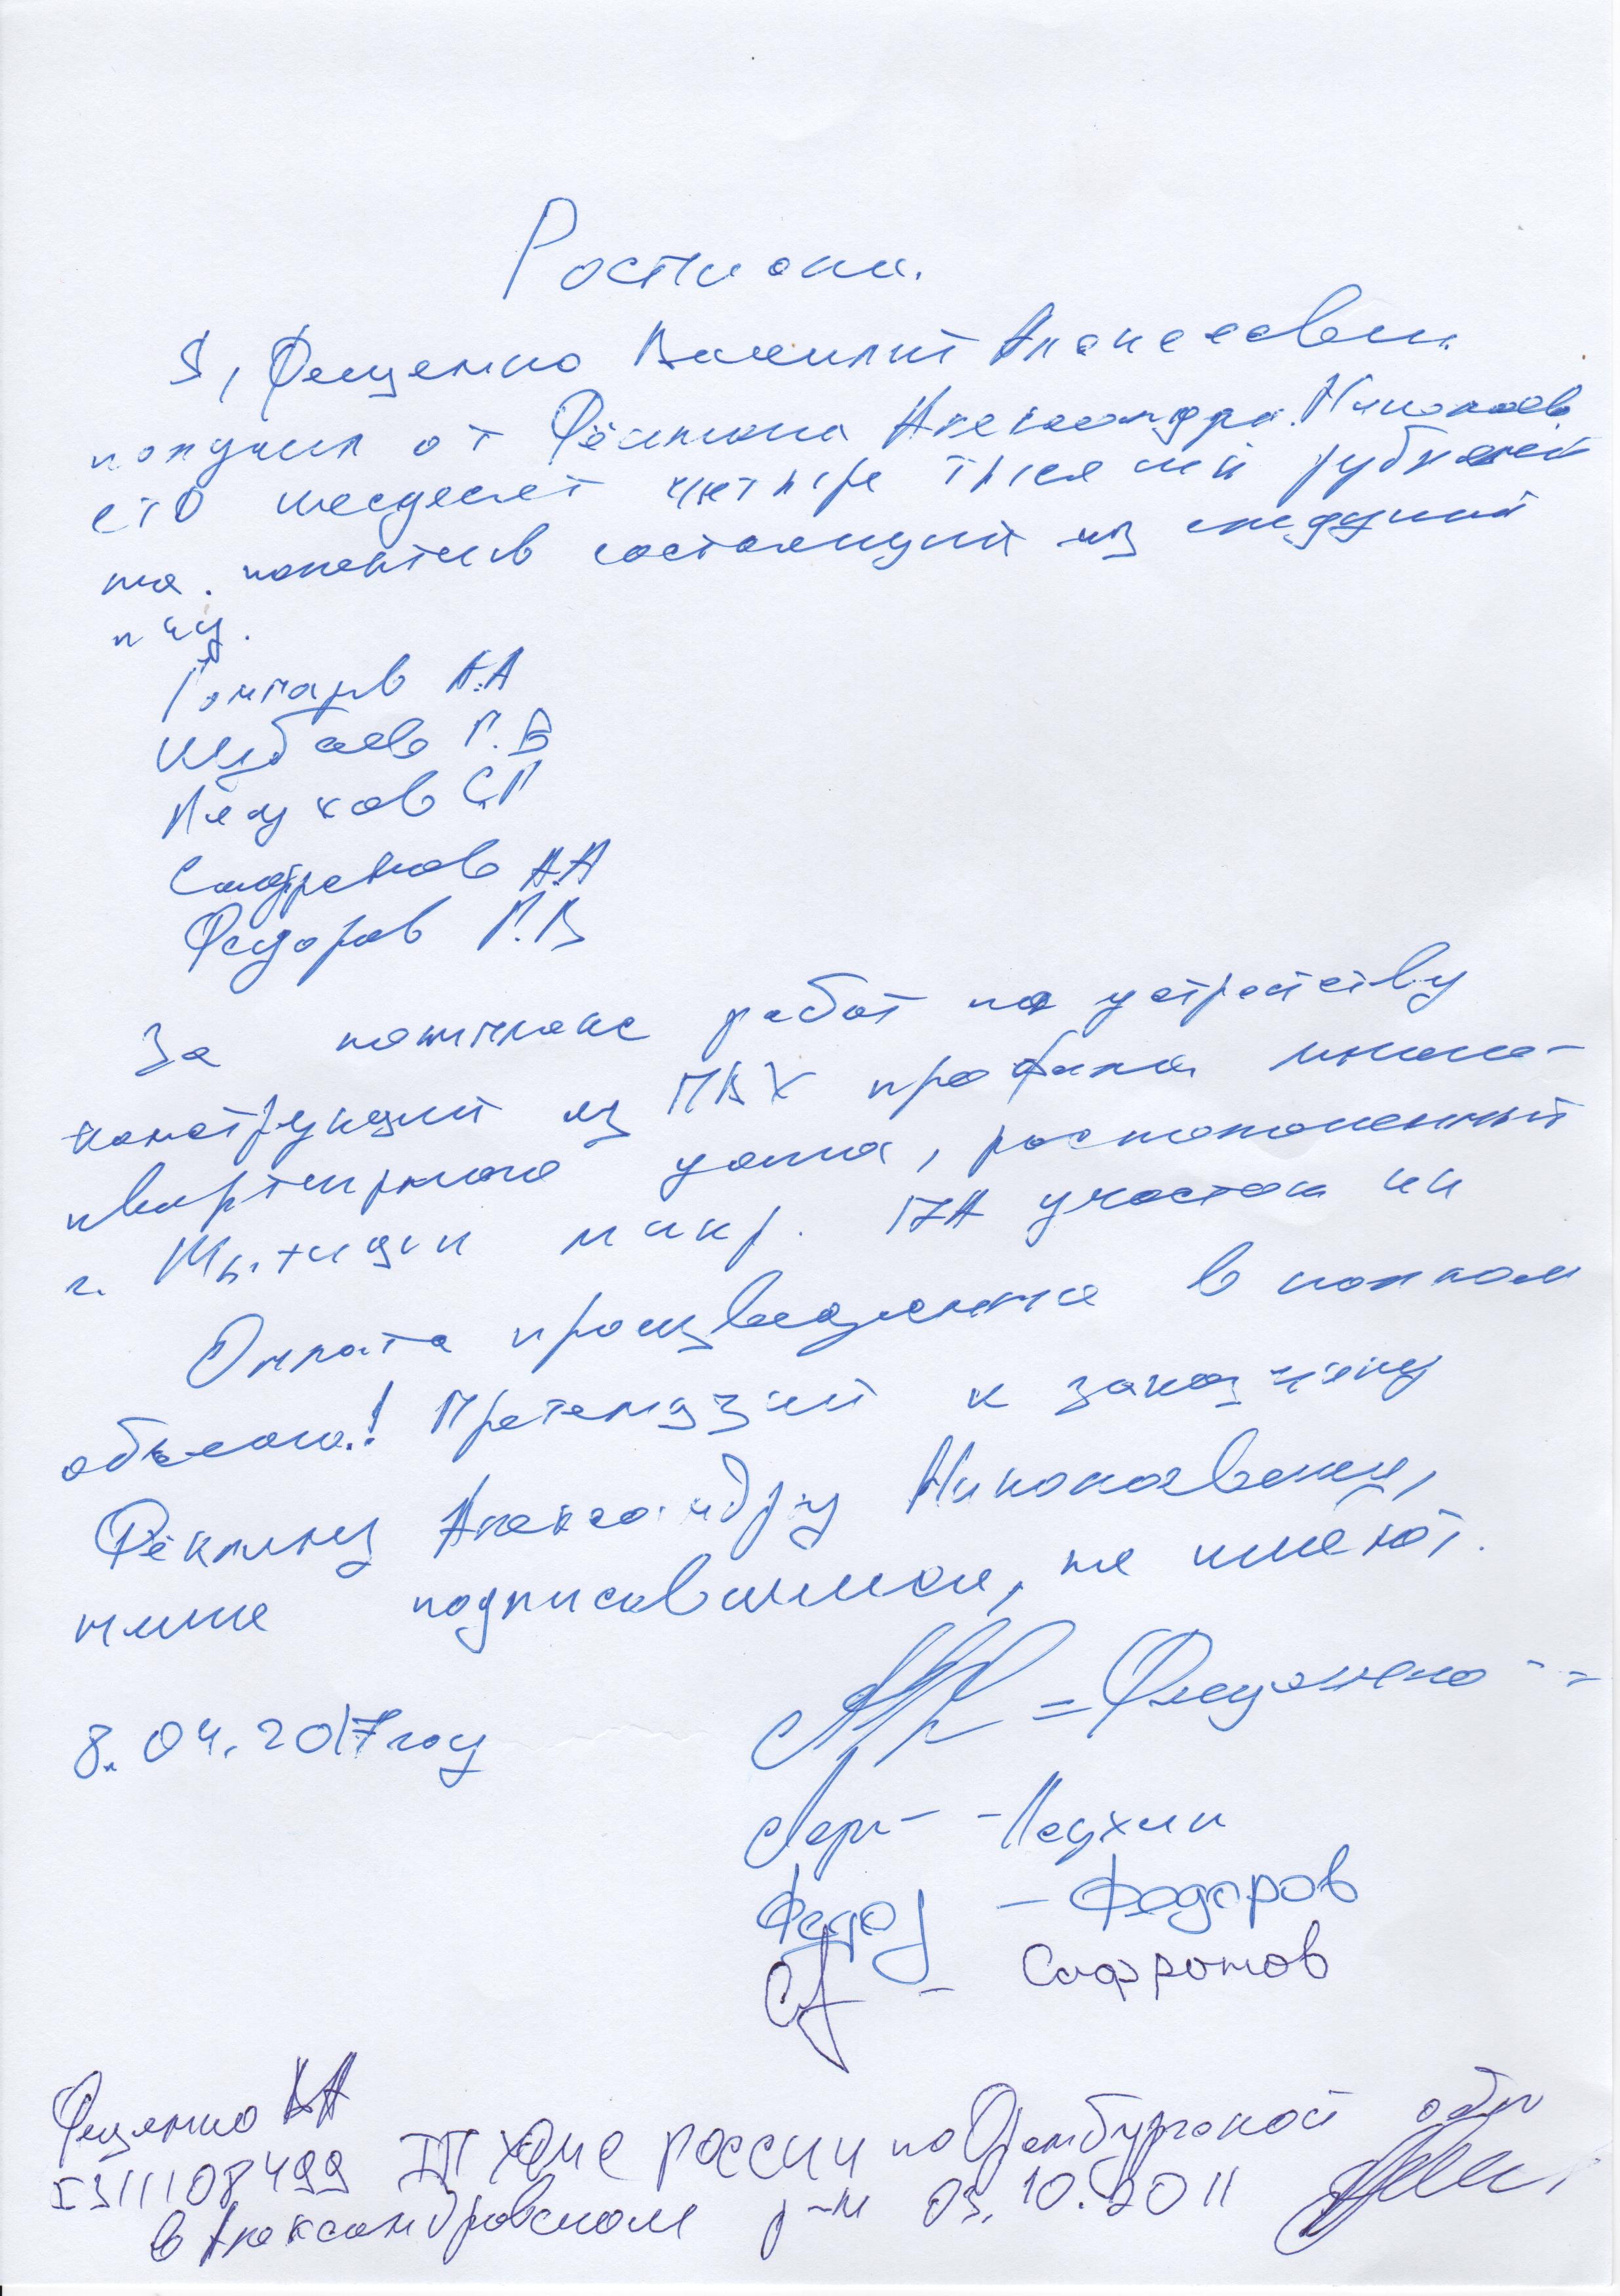 Росписка.
Я, Фещенко Василий Алексеевич
получил от Фёкина Александра Николаев
сто шесдесят четыре тысячи рублей
на колектив состоящий из следующий
лиц.
Гончаров А.А
Шубаев П.В
Пядухов С.П
Сафронов А.А
Федоров П.В
За комплекс работ по устройству
конструкций из ПВХ профиля много-
квартирного дома, росположенный
г. Мытищи микр. 17А участок
Оплата произведенна в полном
объеме.! Претендзий к заказчику
Александру Николаевичу,
ниже подписавшиеся, не имеют.
Фещенко
8.04.2017году
Федор - Федоров
- Сафронов
Фещенко ВА
5311108499 ТП УФМС россии по Оренбургской обл
в Александровском р-не 03.10.2011